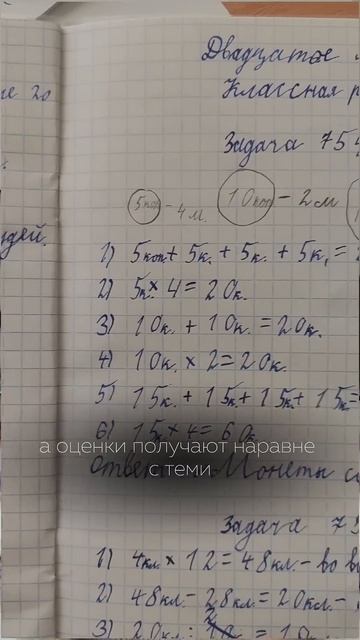 Двадцатое
Классная р
Задача 754
5коп - 4 м. 10коп - 2 м
1) 5коп + 5к. + 5к. + 5к. =
2) 5к. × 4 = 20к.
3) 10к. + 10к. = 20к.
4) 10к. × 2 = 20к.
5) 15к. + 15к. + 15к. + 15к. =
6) 15к. × 4 = 60к
а оценки получают наравне
с теми
Монеты
Задача 75
1) 4кл. × 12 = 48кл. - во в
2) 48кл. - 28кл. = 20кл. -
3) 20кл :
ие 20
юдей.